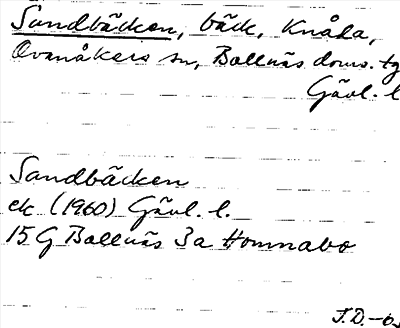 Sandbäcken, bäck, Knåda,
Ovanåkers sn, Bollnäs doms. tg
Gävl. l
Sandbäcken
ek (1960) Gävl. l.
15 G Bollnäs 3a Homnabo
J.D.